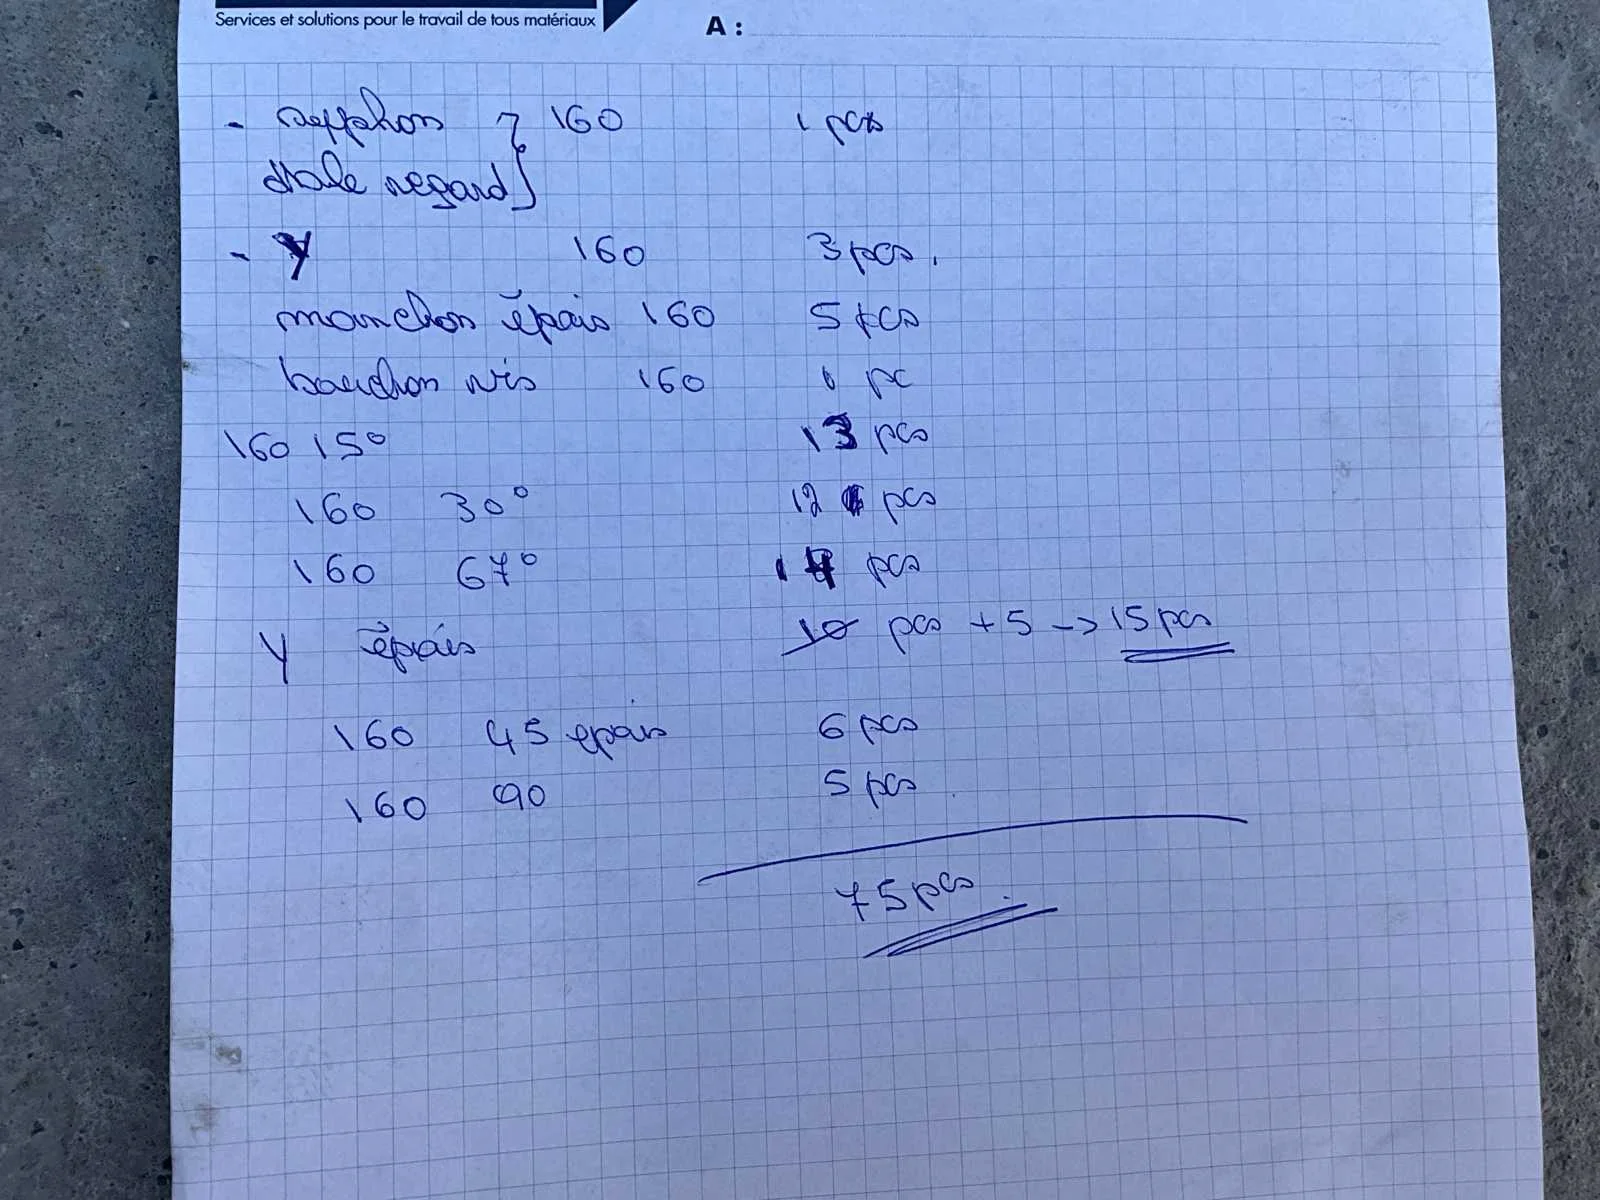 Services et solutions pour le travail de tous matériaux
A :
- syphon } 160 1 pcs
dale regard
- Y 160 3 pcs.
manchon épais 160 5 pcs
bouchon vis 160 1 pc
160 15° 13 pcs
160 30° 12 pcs
160 67° 14 pcs
Y épais 10 pcs + 5 -> 15 pcs
160 45 epais 6 pcs
160 90 5 pcs
75 pcs.